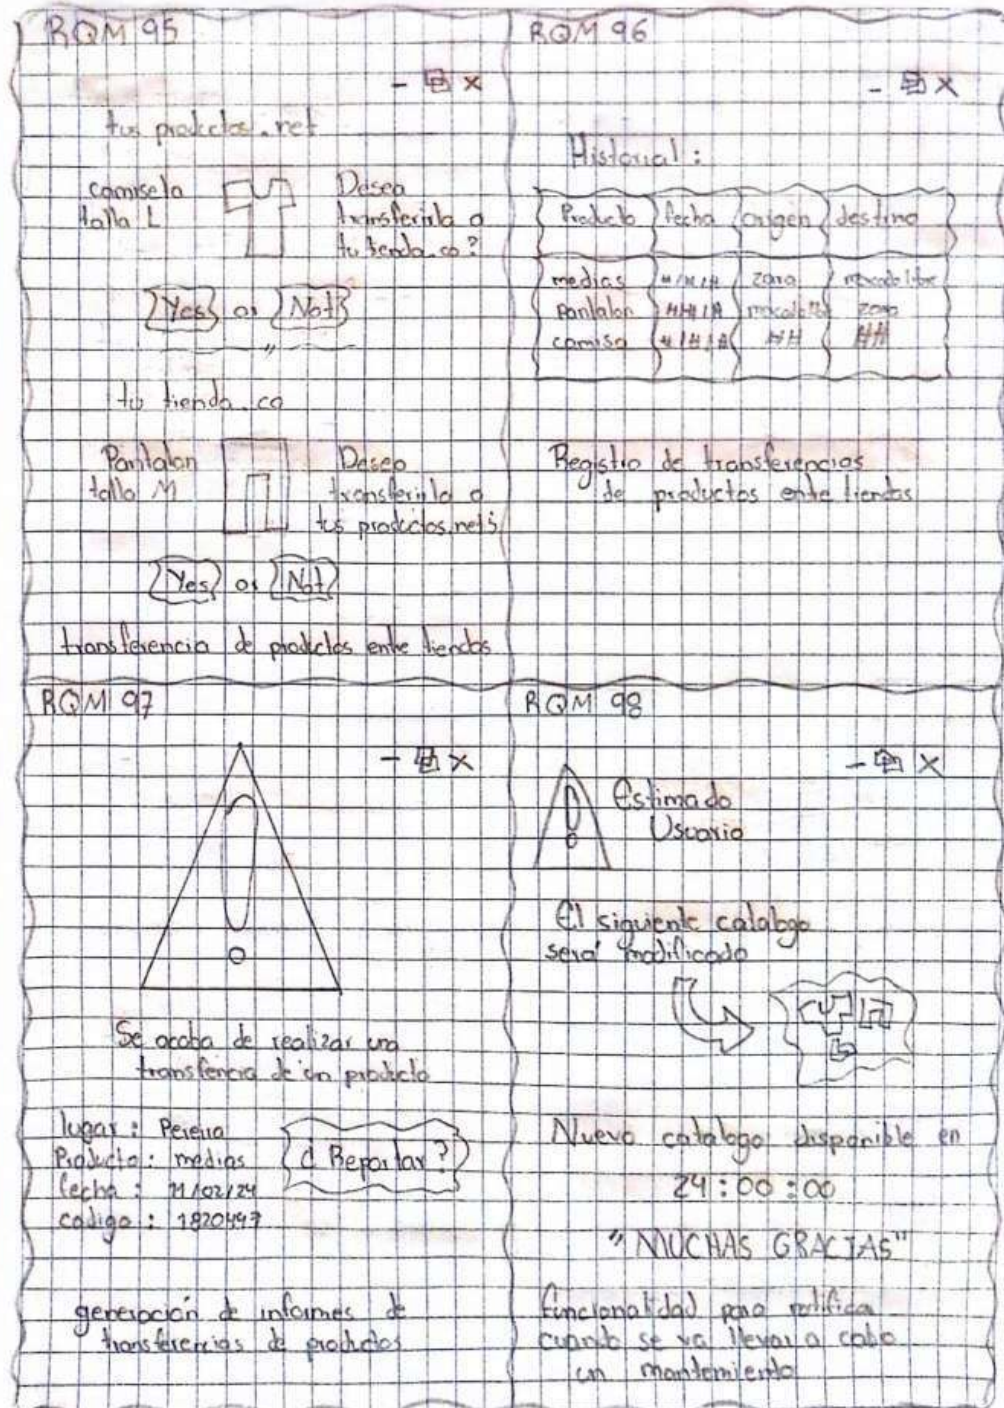 RQM 95
- X
tus productos.net
camisela
talla L
Desea
transferirla a
tu tienda.co?
Yes or Not
"
tu tienda.co
Pantalon
talla M
Desea
transferirlo a
tus productos.net?
Yes or Not
transferencia de productos entre tiendas
RQM 96
- X
Historial :
Producto fecha origen destino
medias #/#/# zara mercado libre
pantalon #/#/# zara
camisa #/#/# ## ##
Registro de transferencias
de productos ente tiendas
RQM 97
- X
Se acaba de realizar una
transfencia de un producto
lugar : Pereira
Producto : medias
fecha : 11/02/24
codigo : 1820497
¿ Reportar ?
generacion de informes de
transferencias de productos
RQM 98
- X
Estimado
Usuario
El siguiente catalogo
será modificado
Nuevo catalogo disponible en
24 : 00 : 00
"MUCHAS GRACIAS"
funcionalidad para notificar
cuando se va llevar a cabo
un mantemiento